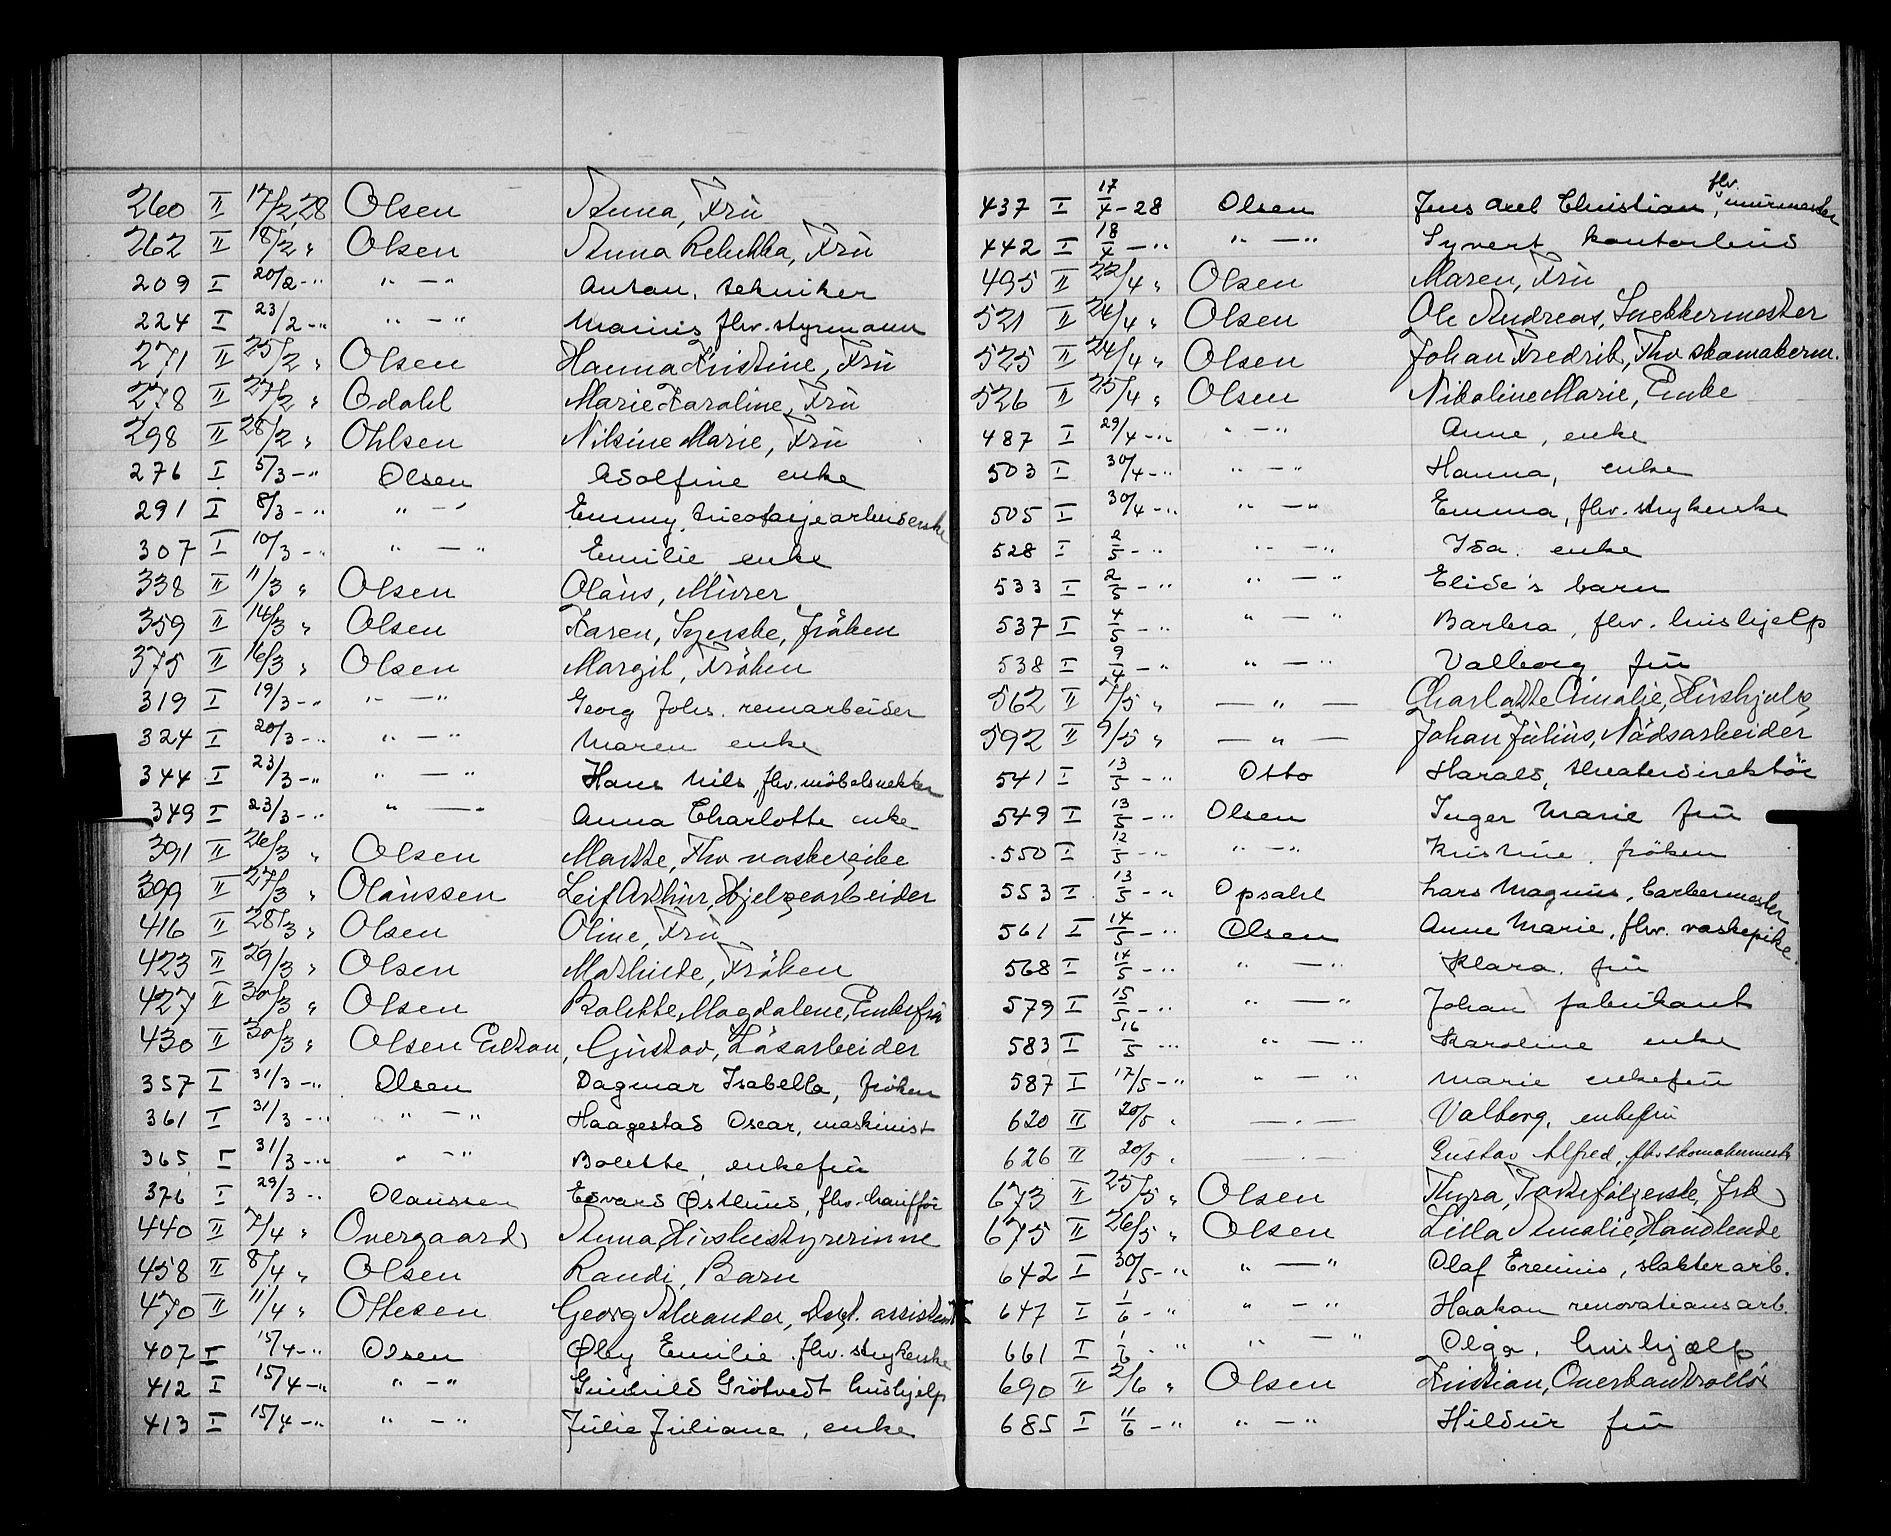 260 II 17/2 28 Olsen Anna, Frü
262 II 18/2 " Olsen Anna Rebekka, Frü
209 I 20/2 -" " - " Anton, tekniker
224 I 23/2 -" " - " Marius flv. styrmann
271 II 25/2 " Olsen Hanna Kristine, Frü
278 II 27/2 " Odahl Marie Karoline, Frü
298 II 28/2 " Ohlsen Nilsine Marie, Frü
276 I 5/3 -" Olsen Adolfine enke
291 I 8/3 -" " - " Emmy, tricotagearbeiderske
307 I 10/3 -" " - " Emilie enke
338 II 11/3 " Olsen Olaüs, Mürer
359 II 14/3 " Olsen Karen, Syerske, fröken
375 II 16/3 " Olsen Margit, Fröken
319 I 19/3 -" " - " Georg Johs. remarbeider
324 I 20/3 -" " - " Maren enke
344 I 23/3 -" " - " Hans Nils, flv. möbelsnekker
349 I 23/3 -" " - " Anna Charlotte enke
391 II 26/3 " Olsen Marthe, Fhv vaskepike
399 II 27/3 " Olaüssen Leif Arthür, Hjelpearbeider
416 II 28/3 " Olsen Oline, Frü
423 II 29/3 " Olsen Mathilde, Fröken
427 II 30/3 " Olsen Bolette Magdalene, Enkefrü
430 II 30/3 " Olsen Elton, Güstav, Løsarbeider
357 I 31/3 -" Olsen Dagmar Isabella, fröken
361 I 31/3 -" " - " Haagestad Oscar, maskinist
365 I 31/3 -" " - " Bolette, enkefrü
376 I 29/3 -" Olaüssen Edvard Østlünd, flv. chaufför
440 II 7/4 " Overgaard Anna, Hüsbestyrerinne
458 II 8/4 " Olsen Randi, Barn
470 II 11/4 " Ottesen Georg Alexander, Dept. assistent
407 I 15/4 -" Olsen Øley Emilie flv. strykerske
412 I 15/4 -" " - " Günhild Grötvedt hüshjelp
413 I 15/4 -" " - " Jülie Jüliane, enke
437 I 17/4 - 28 Olsen Jens Axel Christian, flv. mürmester
442 I 18/4 -" " - " Syvert kontorbüd
495 II 22/4 " Olsen Maren, Frü
521 II 24/4 " Olsen Ole Andreas, Snekkermester
525 II 24/4 " Olsen Johan Fredrik, Fhv skomakerm.
526 II 25/4 " Olsen Nikoline Marie, Enke
487 I 29/4 -" " - " Anne, enke
503 I 30/4 -" " - " Hanna, enke
505 I 30/4 -" " - " Emma, flv. strykerske
528 I 2/5 -" " - " Ida. enke
533 I 2/5 -" " - " Elide's barn
537 I 4/5 -" " - " Barbra, flv. hüshjelp
538 I 9/4 -" " - " Valborg frü
562 II 7/5 " — " — Charlotte Amalie, Hüshjelp
592 II 9/5 " — " — Johan Jülius, Nödsarbeider
541 I 13/5 -" Otto Harald, theaterdirektör
549 I 13/5 -" Olsen Inger Marie frü
550 I 12/5 -" " - " Kristine. fröken
553 I 13/5 -" Opsahl Lars Magnüs, barbermester
561 I 14/5 -" Olsen Anne Marie, flv. vaskepike.
568 I 14/5 -" " - " Klara. frü
579 I 15/5 -" " - " Johan fabrikant
583 I 16/5 -" " - " Karoline enke
587 I 17/5 -" " - " Marie enkefrü
620 II 20/5 " — " — Valborg, enkefrü
626 II 20/5 " — " — Güstav Alfred, fhv. skomakermestr
673 II 25/5 " Olsen Thyra, frk
675 II 26/5 " Olsen Lilla Amalie, Handlende
642 I 30/5 -" " - " Olaf Erenius, slakterarb.
647 I 1/6 -" " - " Haakon renovationsarb.
661 I 1/6 -" " - " Olga, hüshjælp
690 II 2/6 " Olsen Kristian, Overkontrollör
685 I 11/6 -" " - " Hildür frü